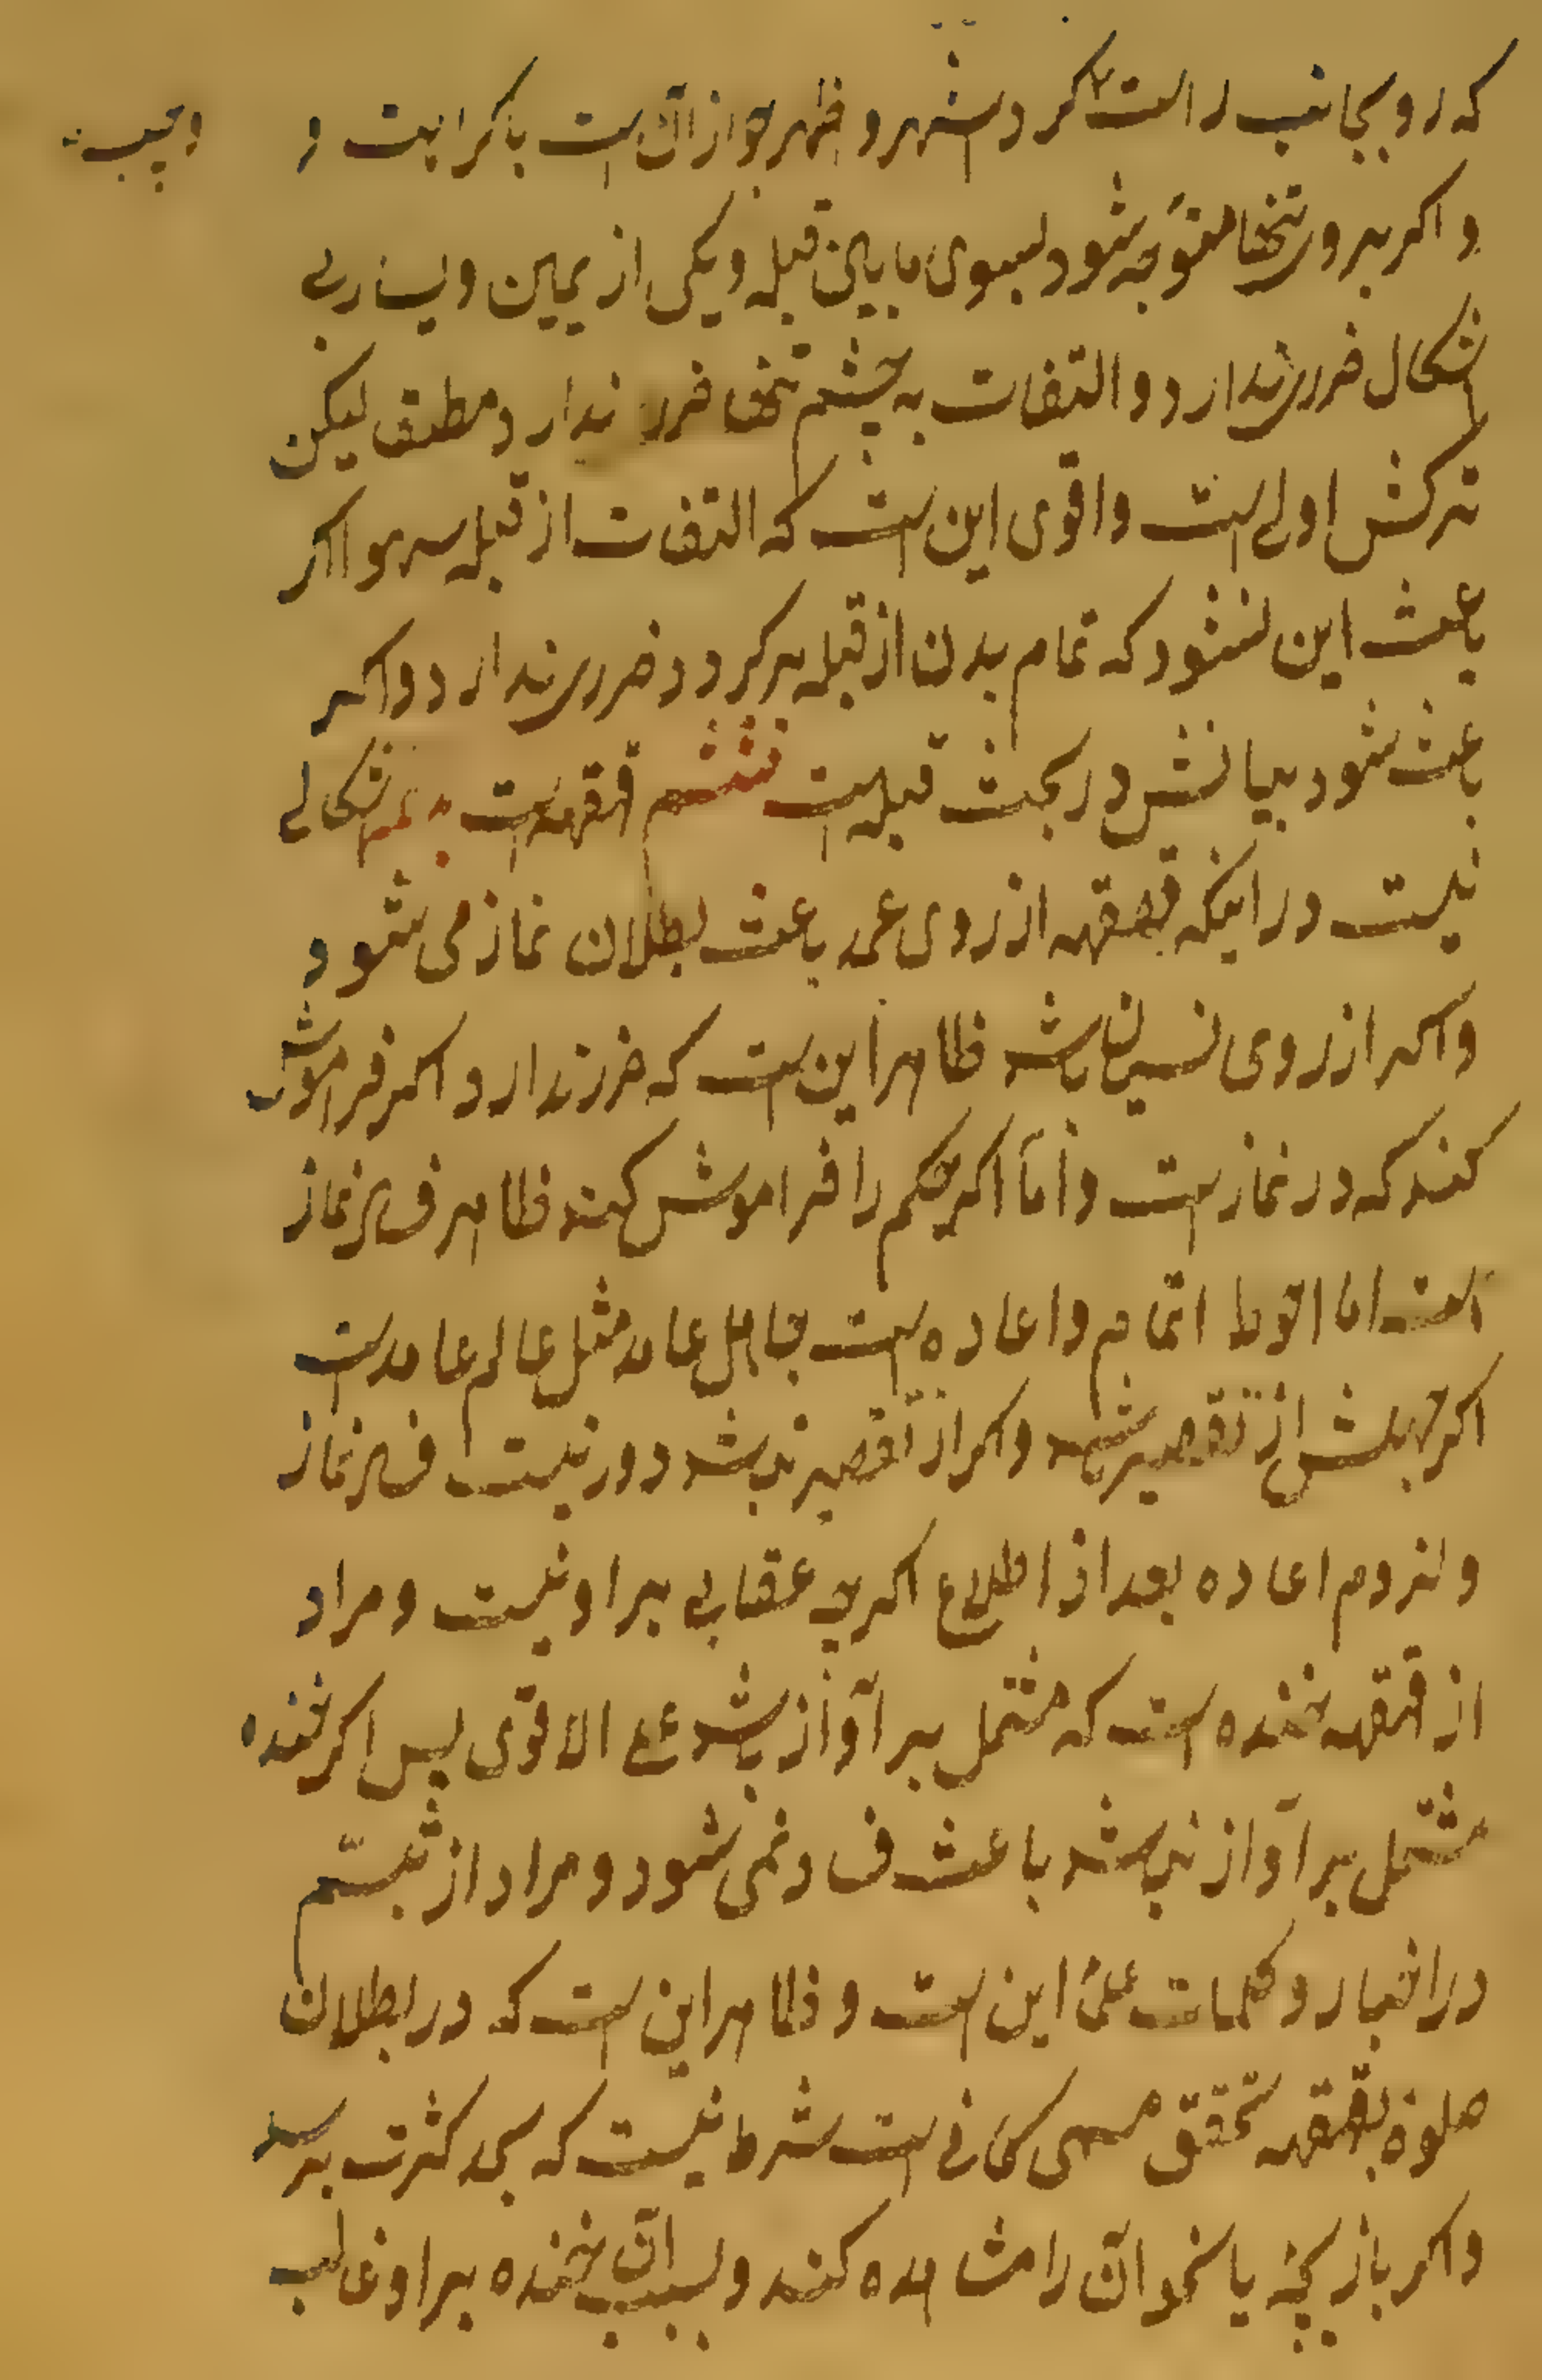 که رو بجانب راست کرد اشهر و اظهر جواز آن است با کراهت و
و اکر برو تنها متوجه شود بسوی ما بین قبله و یکی از یمین و یسار بی
اشکال ضرر ندارد و التفات به چشم تنها ضرر ندارد مطلق لیکن
ترکش اولی است و اقوی این است که التفات از قبله سهو اکر
باعث این نشود که تمام بدن از قبله برکردد ضرر ندارد و اکر
باعث شود بیانش در بحث قبله است ششم قهقهه است بدانکه اشکالی
نیست در اینکه قهقهه از روی عمد باعث بطلان نماز می شود
و اکر از روی نسیان باشد ظاهر این است که ضرر ندارد و اکر فراموش
کند که در نماز است و اما اکر حکم را فراموش کند ظاهر فساد نماز
است اما احوط اتمام و اعاده است جاهل عامد مثل عالم عامد است
اکر جهلش از تقصیر باشد و اکر از تقصیر نباشد دور نیست فساد نماز
و لزوم اعاده بعد از اطلاع اکر چه عقابی بر او نیست و مراد
از قهقهه خنده است که مشتمل بر آواز باشد علی الاقوی پس اکر خنده
مشتمل بر آواز نباشد باعث فساد نمی شود و مراد از تبسّم
در اخبار و کلمات علما این است و ظاهر این است که در بطلان
صلوة بقهقهه تحقق مسمی کافی است شرط نیست که بحد کثرت برسد
و اکر بازیچهٔ یا نحو آن را مشاهده کند و بسبب آن خنده بر او غالب